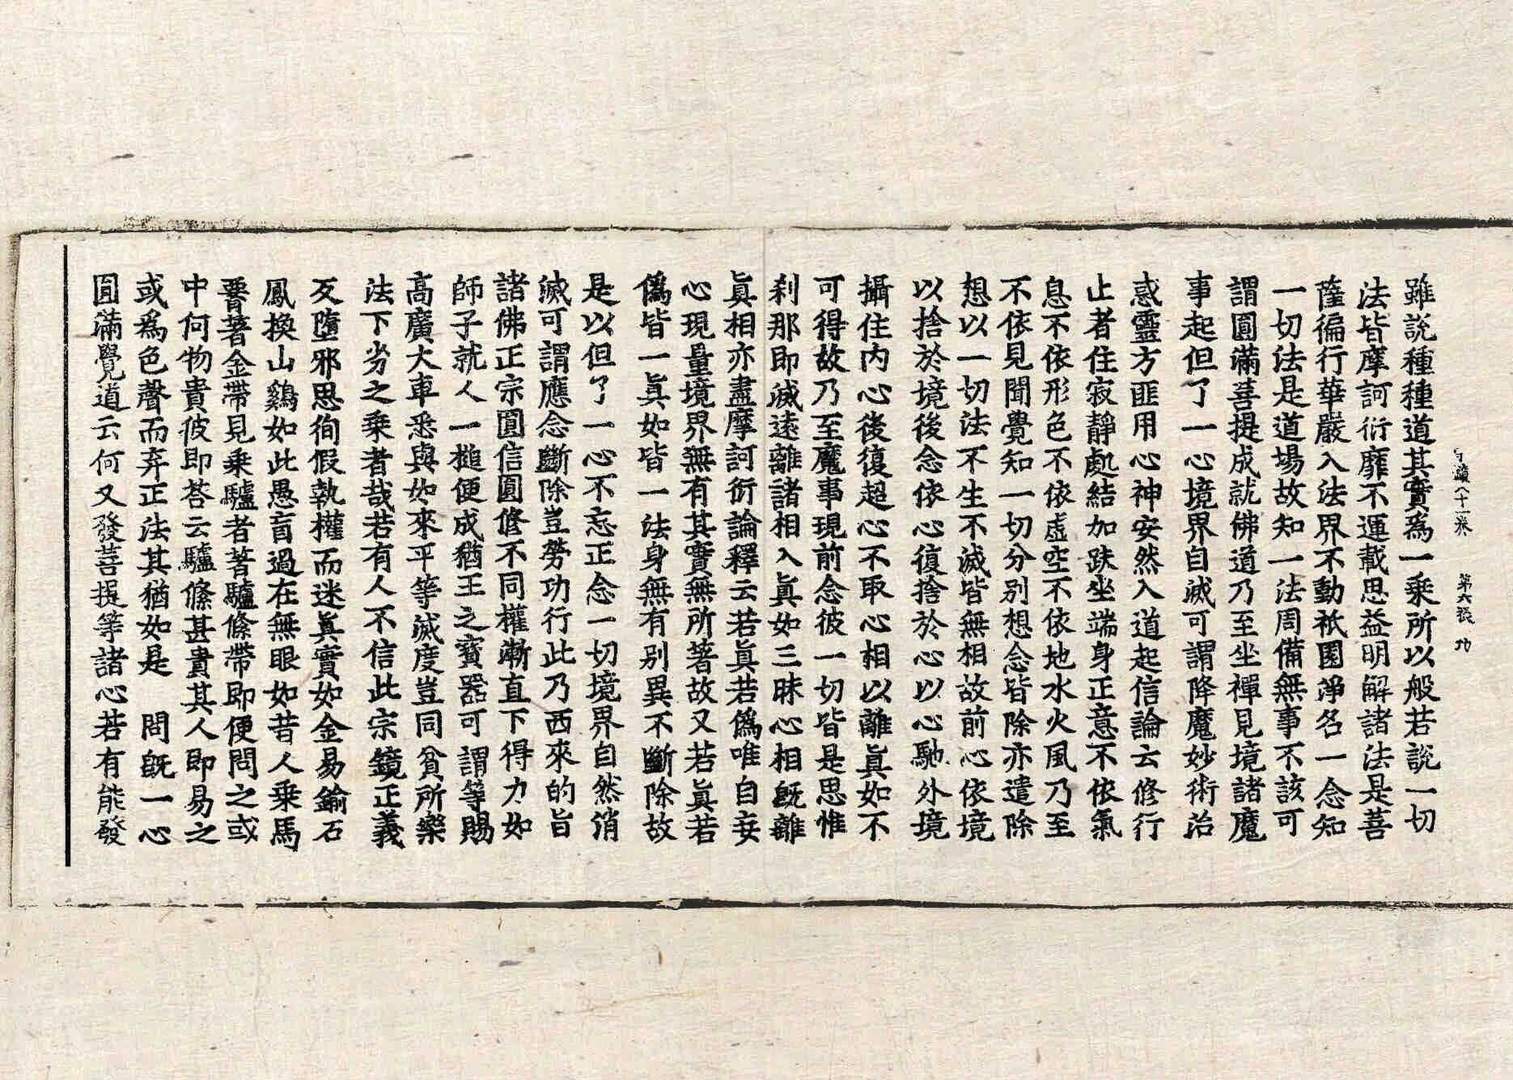 宗鏡八十一卷　第六張　功
雖說種種道其實爲一乘所以般若說一切
法皆摩訶衍靡不運載思益明解諸法是菩
薩徧行華嚴入法界不動祇園淨名一念知
一切法是道場故知一法周備無事不該可
謂圓滿菩提成就佛道乃至坐禪見境諸魔
事起但了一心境界自滅可謂降魔妙術治
惑靈方匪用心神安然入道起信論云修行
止者住寂靜處結加趺坐端身正意不依氣
息不依形色不依虛空不依地水火風乃至
不依見聞覺知一切分別想念皆除亦遣除
想以一切法不生不滅皆無相故前心依境
以捨於境後念依心復捨於心以心馳外境
攝住內心後復起心不取心相以離眞如不
可得故乃至魔事現前念彼一切皆是思惟
刹那卽滅遠離諸相入眞如三昧心相旣離
眞相亦盡摩訶衍論釋云若眞若僞唯自妄
心現量境界無有其實無所著故又若眞若
僞皆一眞如皆一法身無有別異不斷除故
是以但了一心不忘正念一切境界自然消
滅可謂應念斷除豈勞功行此乃西來的旨
諸佛正宗圓信圓修不同權漸直下得力如
師子就人一槌便成猶王之寶器可謂等賜
高廣大車悉與如來平等滅度豈同貧所樂
法下劣之乘者哉若有人不信此宗鏡正義
反墮邪思徇假執權而迷眞實如金易鍮石
鳳換山鷄如此愚盲過在無眼如昔人乘馬
著金帶見乘驢者著驢絛帶卽便問之或
中何物貴彼卽荅云驢絛甚貴其人卽易之
或爲色聲而弃正法其猶如是　問旣一心
圓滿覺道云何又發菩提等諸心若有能發